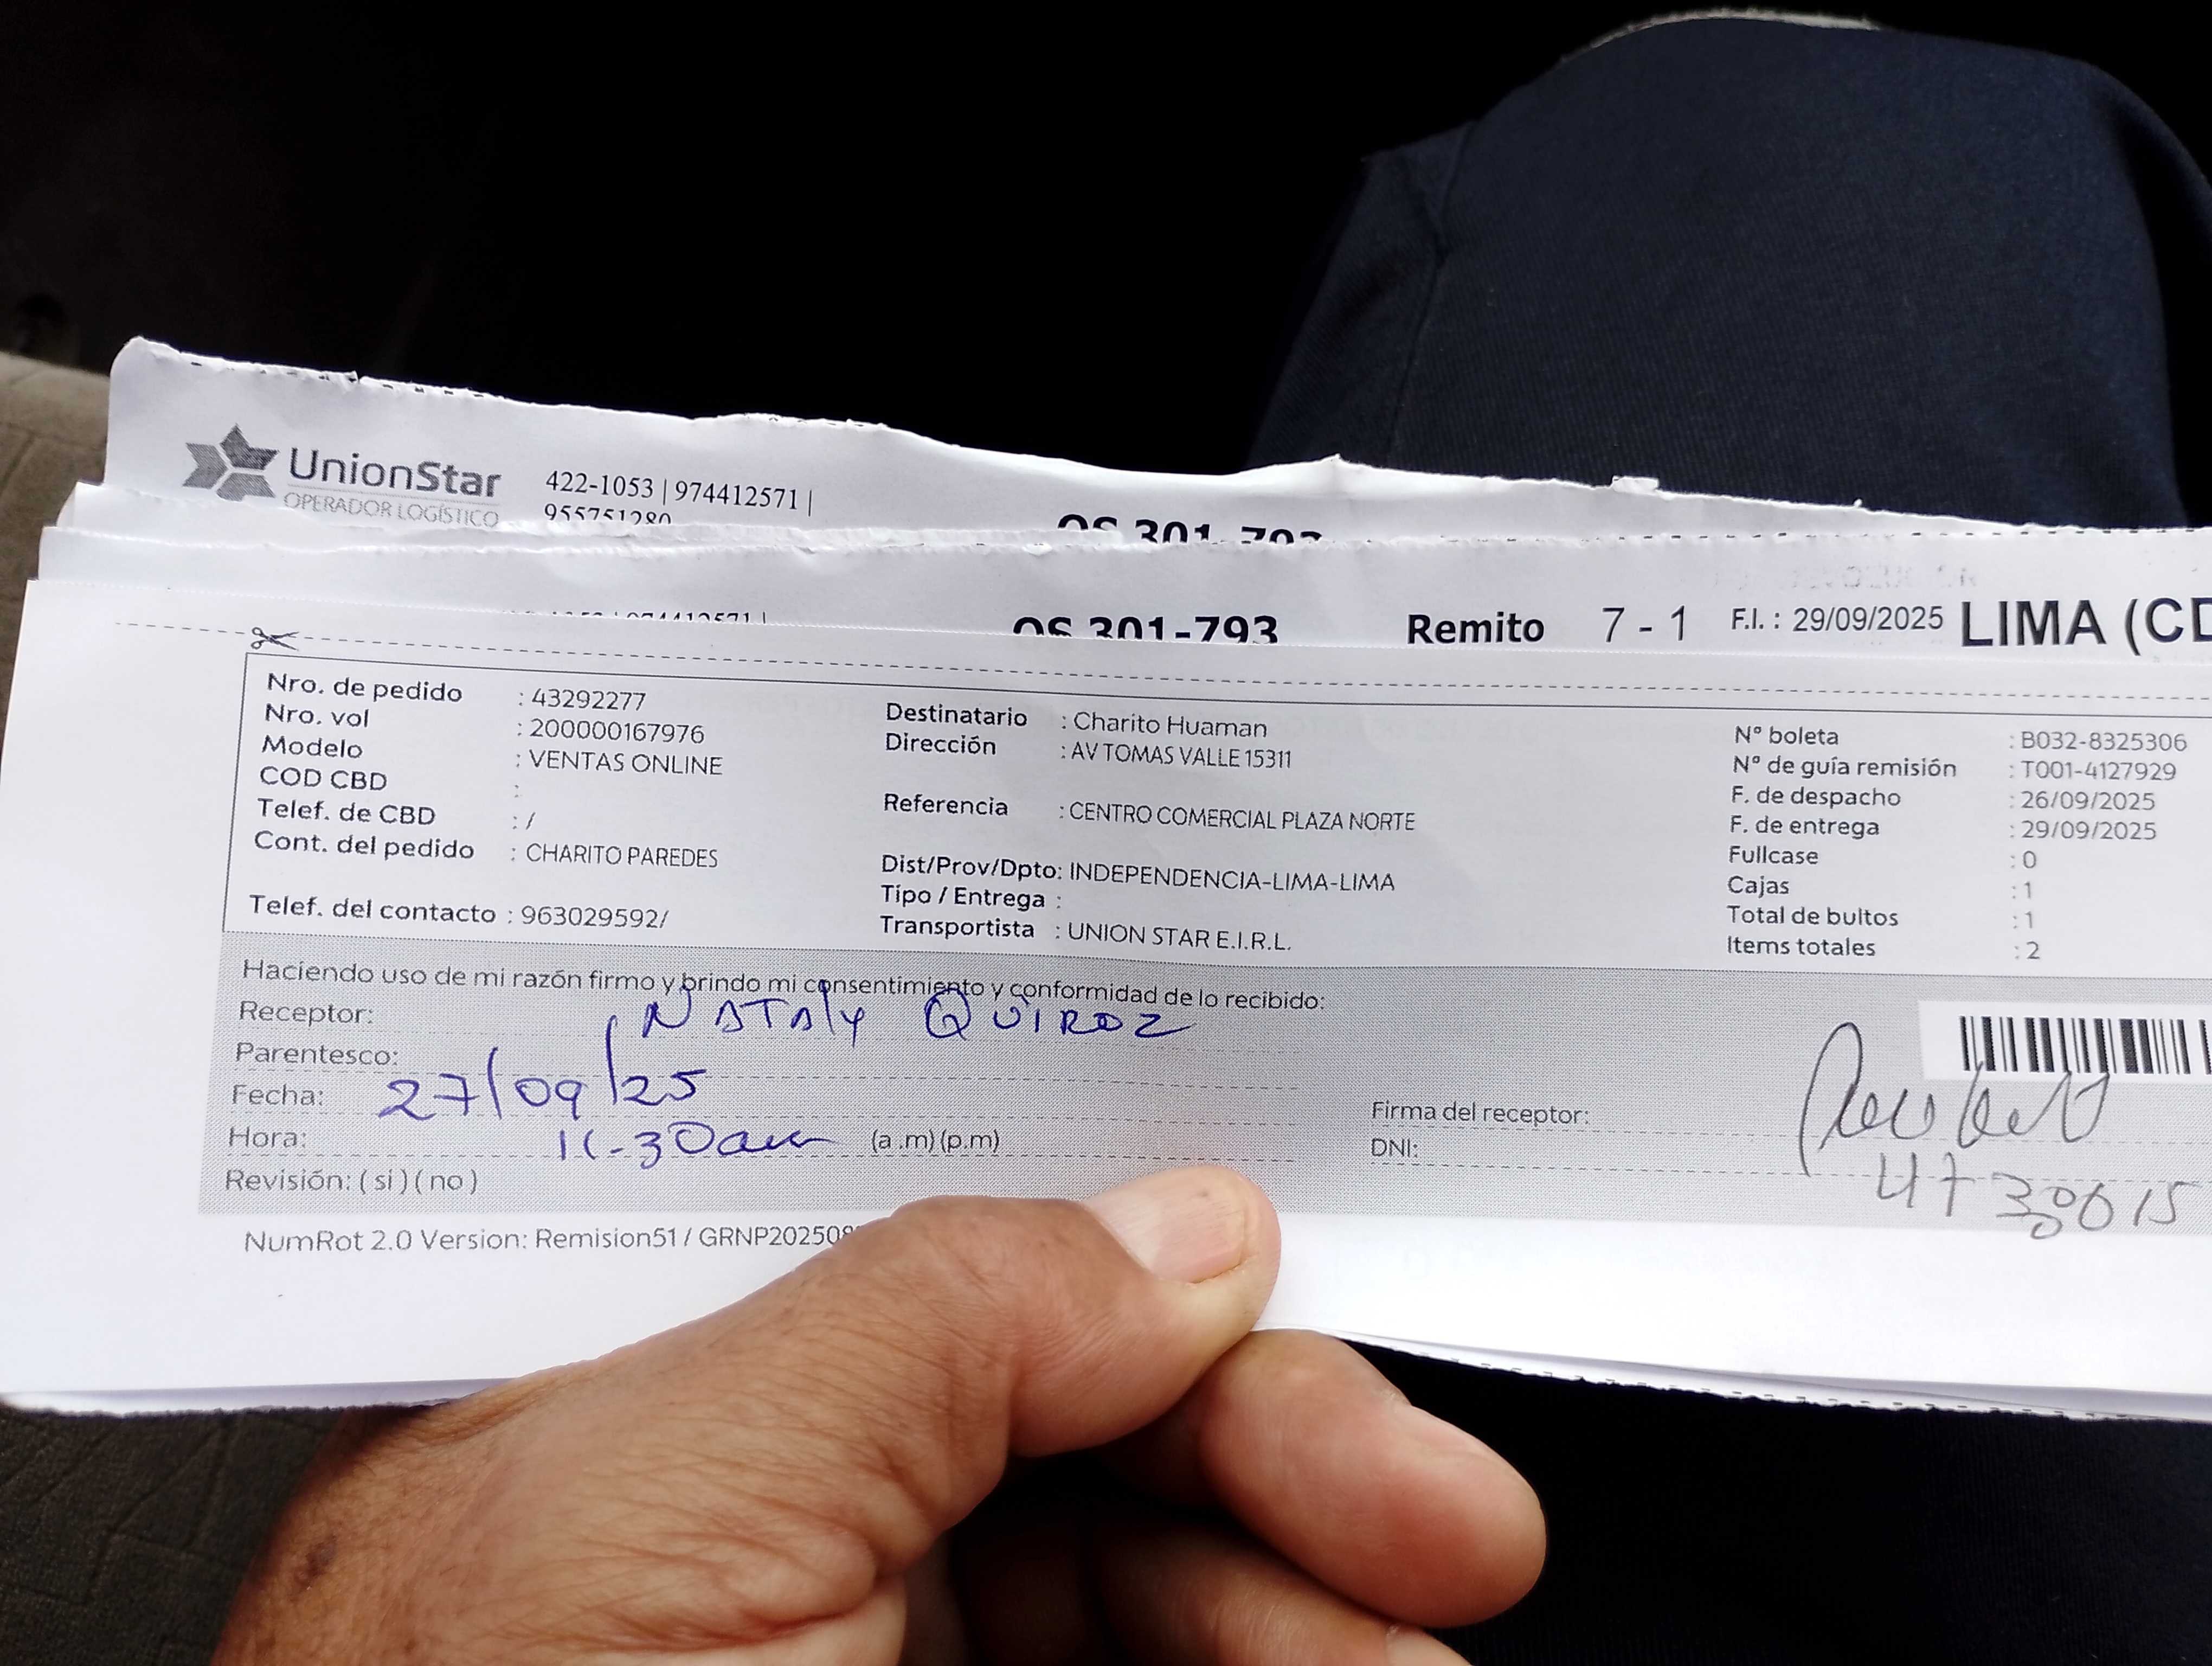 UnionStar
OPERADOR LOGÍSTICO
422-1053 | 974412571 |
955751280
OS 301-793
OS 301-793 Remito 7 - 1 F.I. : 29/09/2025 LIMA (CD
Nro. de pedido : 43292277
Nro. vol : 200000167976
Modelo : VENTAS ONLINE
COD CBD :
Telef. de CBD : /
Cont. del pedido : CHARITO PAREDES
Telef. del contacto : 963029592/
Destinatario : Charito Huaman
Dirección : AV TOMAS VALLE 15311
Referencia : CENTRO COMERCIAL PLAZA NORTE
Dist/Prov/Dpto: INDEPENDENCIA-LIMA-LIMA
Tipo / Entrega :
Transportista : UNION STAR E.I.R.L.
N° boleta : B032-8325306
N° de guía remisión : T001-4127929
F. de despacho : 26/09/2025
F. de entrega : 29/09/2025
Fullcase : 0
Cajas : 1
Total de bultos : 1
Items totales : 2
Haciendo uso de mi razón firmo y brindo mi consentimiento y conformidad de lo recibido:
Receptor: NATALY QUIROZ
Parentesco:
Fecha: 27/09/25
Hora: 11-30am (a .m) (p.m)
Revisión: ( si ) ( no )
Firma del receptor:
DNI:
NumRot 2.0 Version: Remision51 / GRNP202508